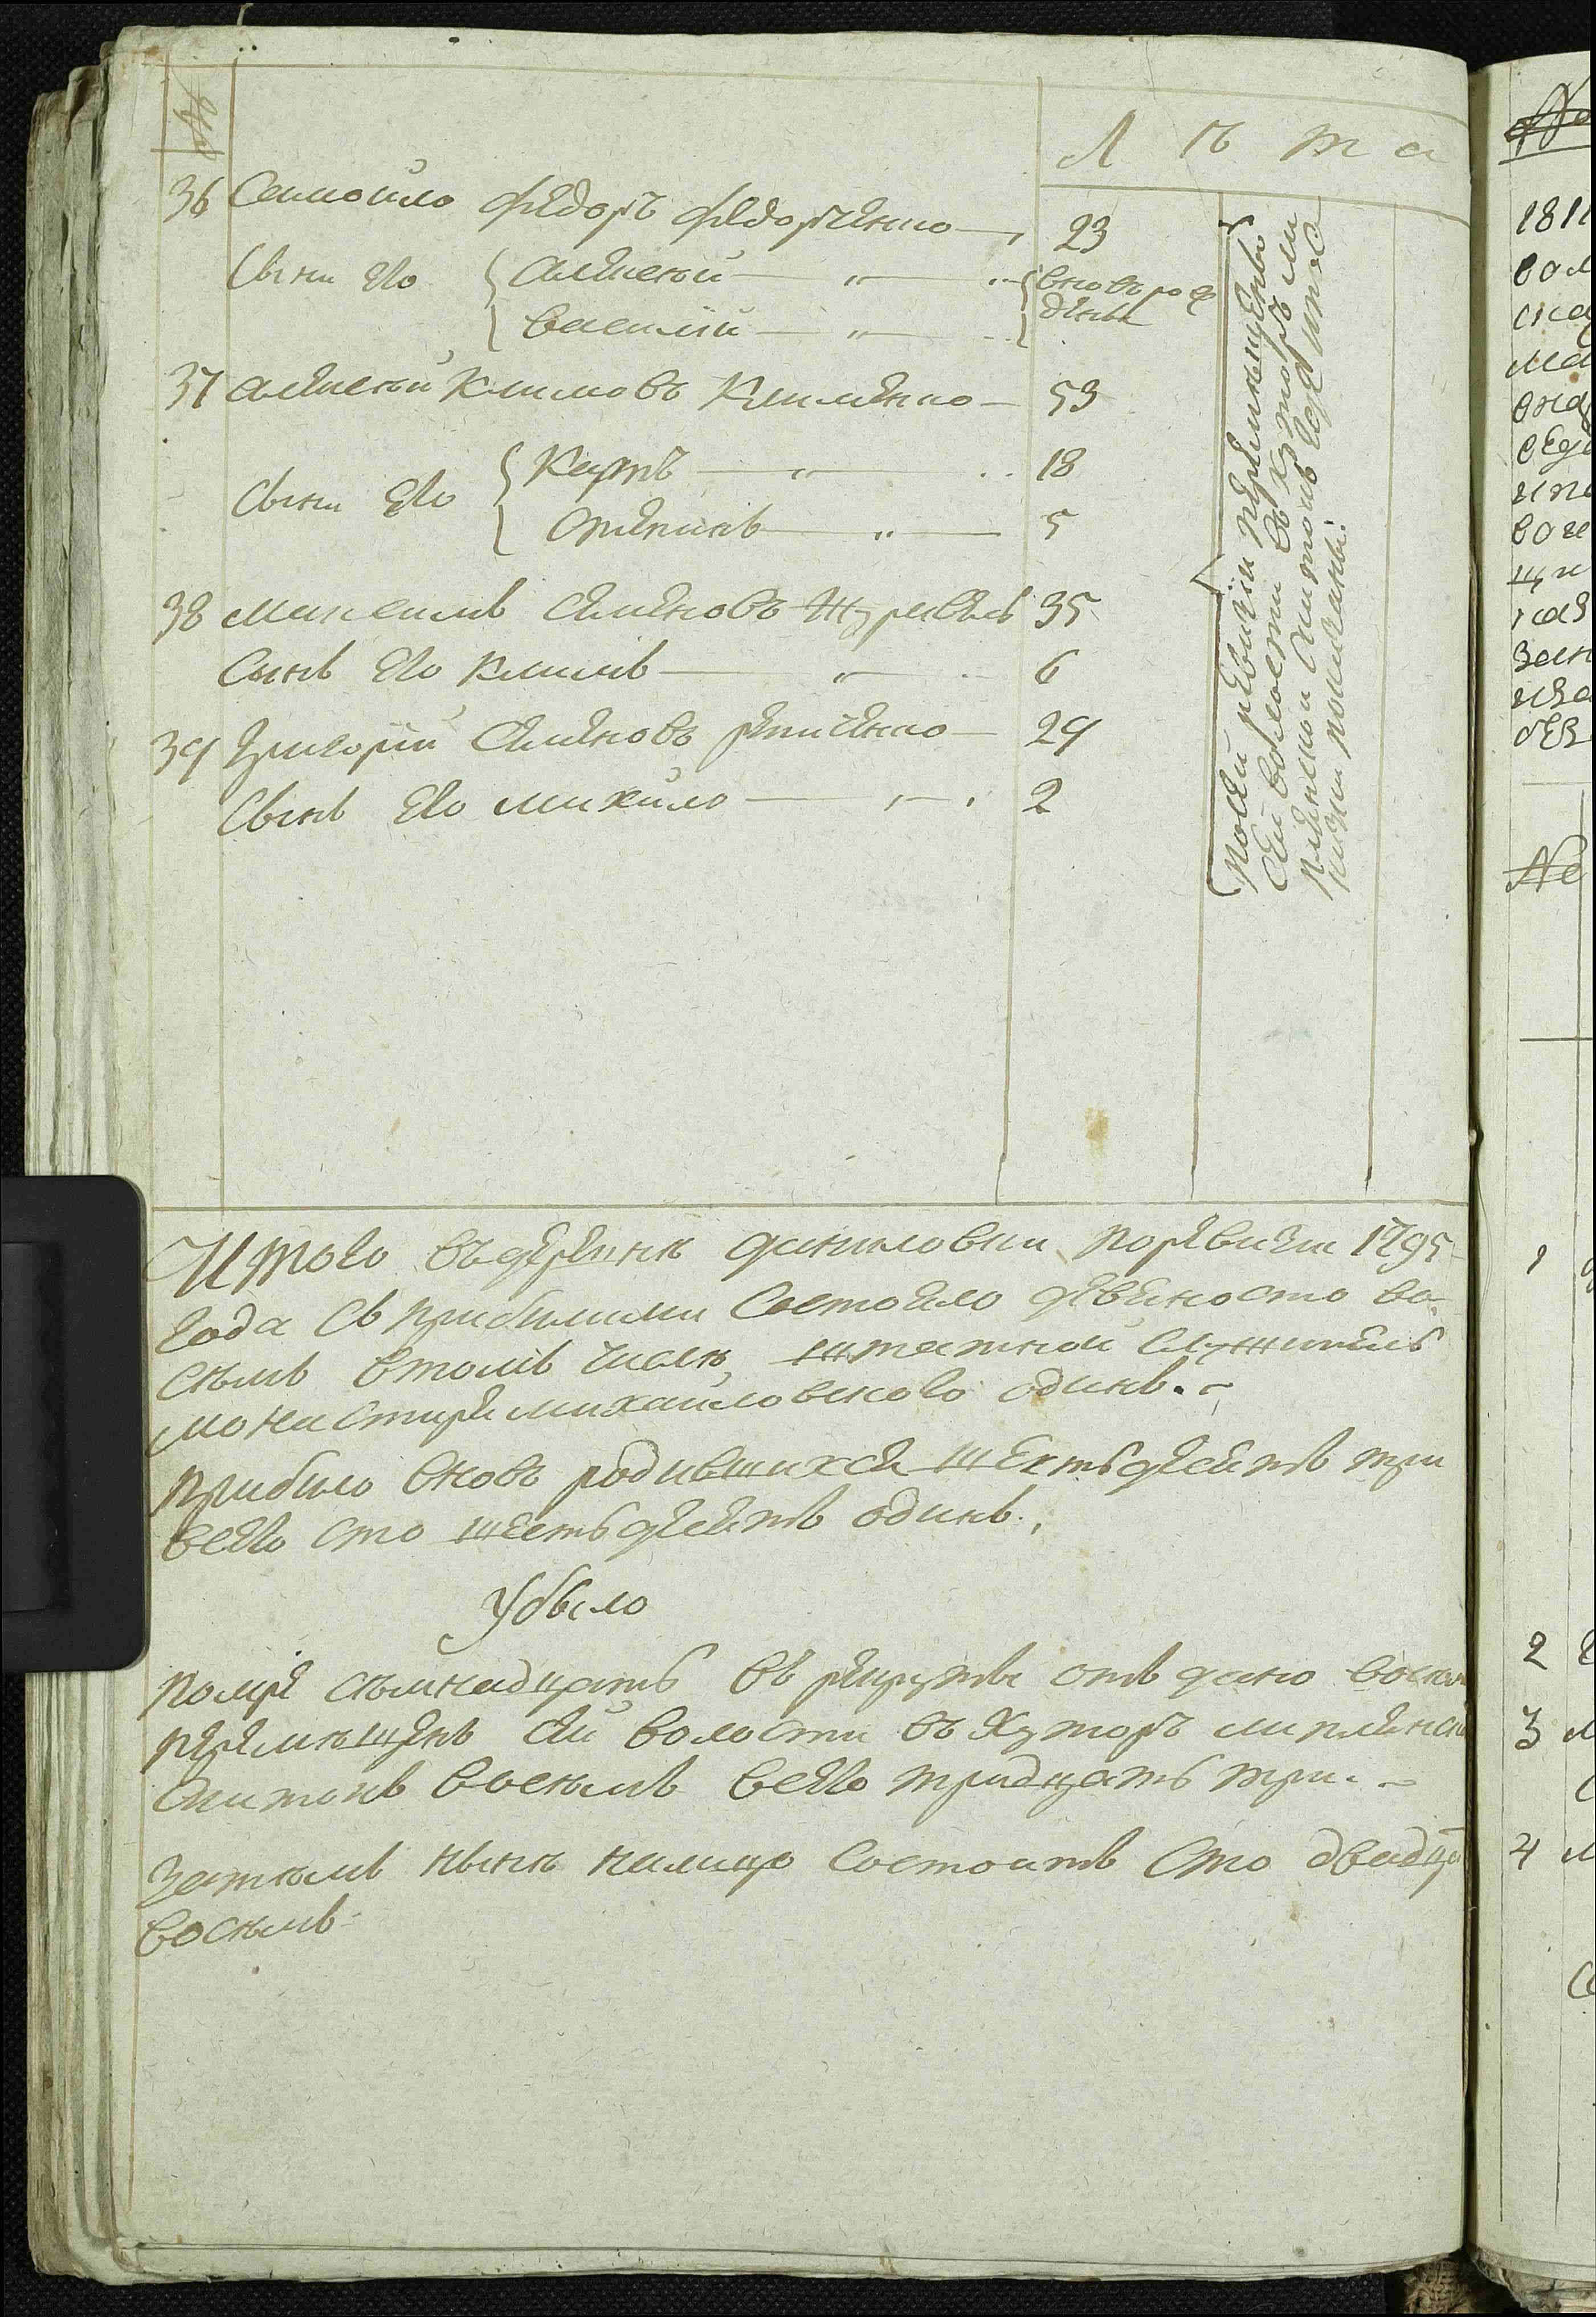 №
Л ѣ т а
36 Самойло Федоръ Федорченко — 23
Сыни Его { Алексѣй — " — вновь рож
{ Василій — " — денны
37 Алексѣй Климовъ Клименко — 53
Сыни Его { Карпъ — " — 18
{ Степанъ — " — 5
38 Максимъ Семеновъ Журавель 35
Сынъ Его Климъ — " — 6
39 Григорій Семеновъ — 29
Сынъ Его Михайло — " — 2
Посей ревизіи перемѣщены
сей волости въ Хуторъ
Скитокъ
показаны.
Итого въ деревнѣ Даниловки поревизіи 1795
года съ прибилими Состояло девяносто во-
семъ втомъ числѣ штатной служитель
монастиря Михайловского одинъ.
Прибило вновь родившихся шестьдесятъ три
всего сто шестьдесятъ одинъ.
Убыло
Помре семнадцать въ рекруты отъ дано восем
перемѣщенъ сей волости въ Хуторъ
Скитокъ восемъ всего тридцать три.
Затѣмъ нынѣ налицо состоитъ Сто двадца
восемъ
№
181
1
2
3
4